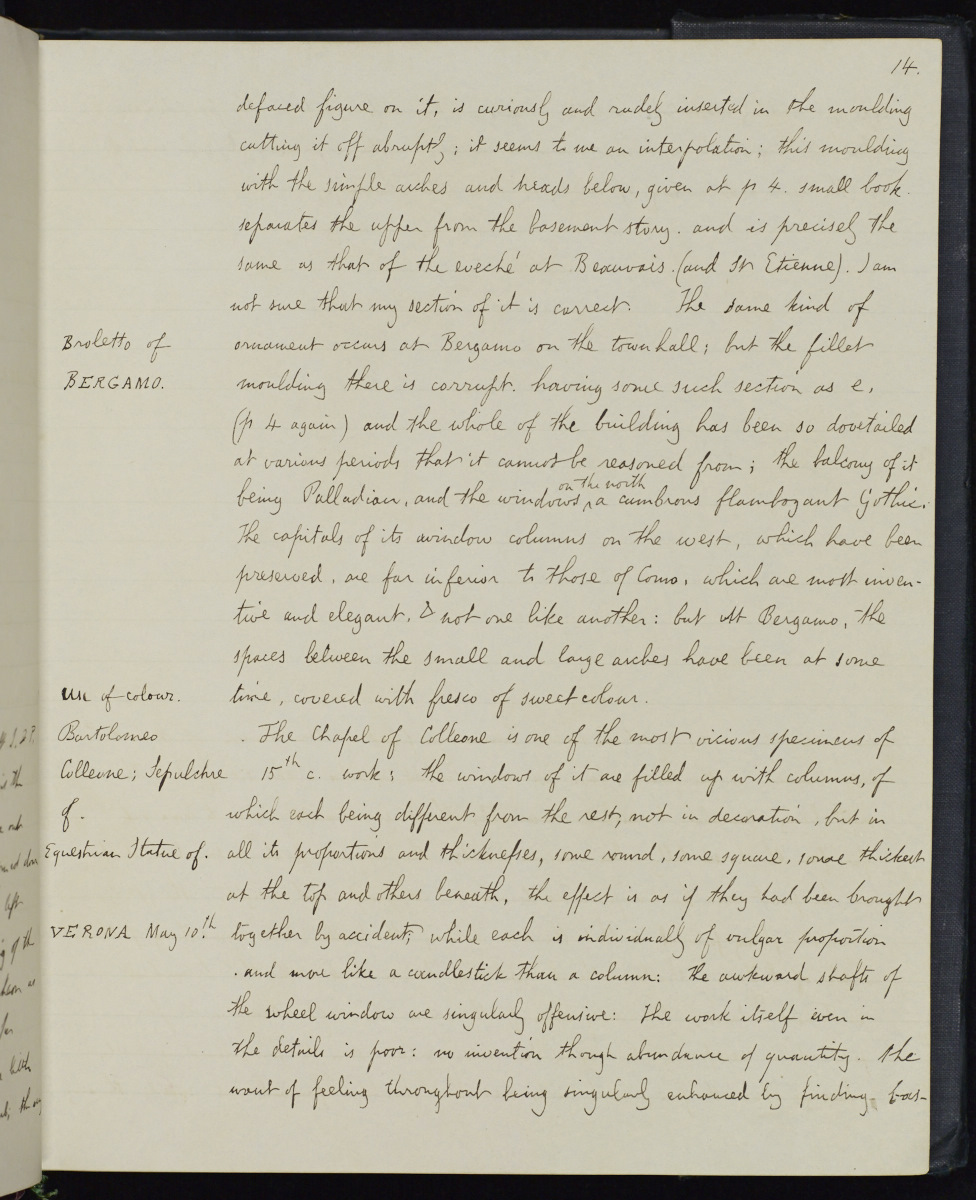 14.
defaced figure on it, is curiously and rudely inserted in the moulding
cutting it off abruptly; it seems to me an interpolation; this moulding
with the simple arches and heads below, given at p 4. small book.
separates the upper from the basement story. and is precisely the
same as that of the eveché at Beauvais. (and St Etienne). I am
not sure that my section of it is correct. The same kind of
Broletto of
ornament occurs at Bergamo on the townhall; but the fillet
BERGAMO.
moulding there is corrupt. having some such section as e,
(p 4 again) and the whole of the building has been so dovetailed
at various periods that it cannot be reasoned from; the balcony of it
on the north
being Palladian, and the windows, a cumbrous flamboyant Gothic.
The capitals of its window columns on the west, which have been
preserved, are far inferior to those of Como, which are most inven-
tive and elegant, & not one like another: but at Bergamo, the
spaces between the small and large arches have been at some
Use of colour.
time, covered with fresco of sweet colour.
Bartolomeo
. The Chapel of Colleone is one of the most vicious specimens of
Colleone; Sepulchre
15th c. work; the windows of it are filled up with columns, of
of.
which each being different from the rest, not in decoration, but in
Equestrian Statue of.
all its proportions and thicknesses, some round, some square, some thickest
at the top and others beneath, the effect is as if they had been brought
VERONA May 10th.
together by accident; while each is individually of vulgar proportion
. and more like a candlestick than a column: the awkward shafts of
the wheel window are singularly offensive: The work itself even in
the details is poor: no invention though abundance of quantity. the
want of feeling throughout being singularly enhanced by finding bas-